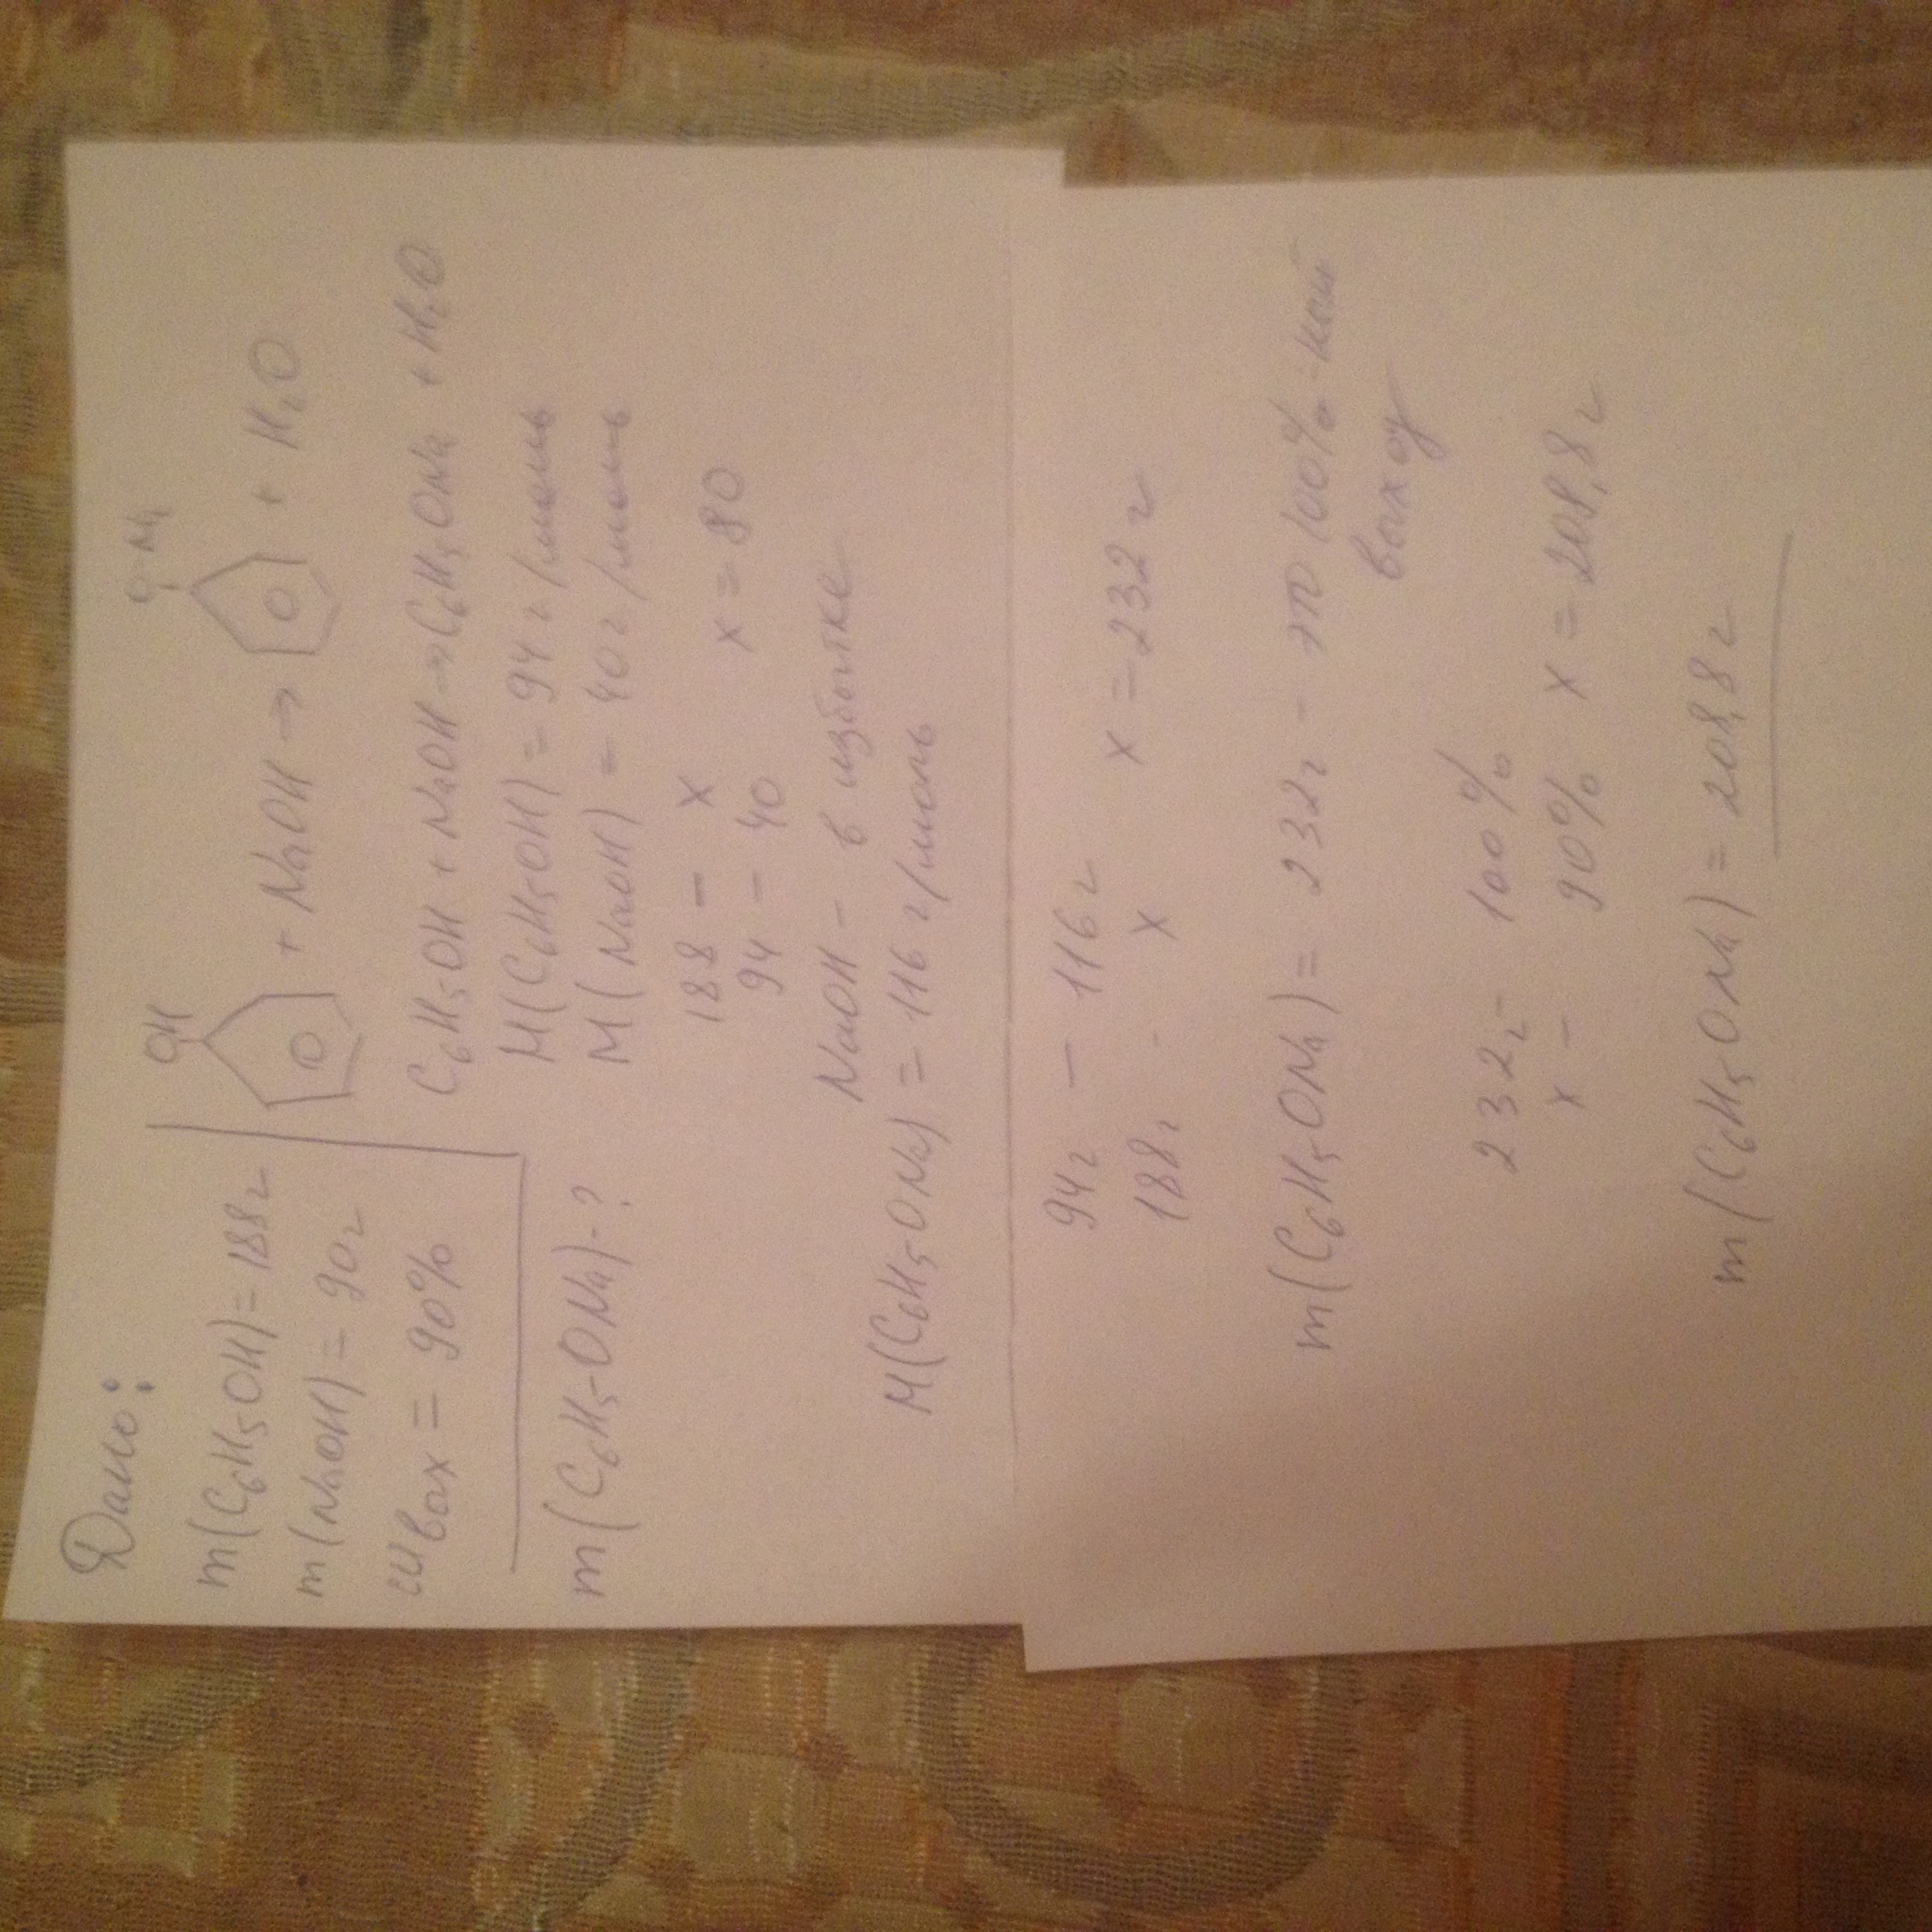 Дано:
m(C6H5OH)=188г
m(NaOH)=90г
ω вых = 90%
m(C6H5ONa)-?
OH O-Na
+ NaOH → + H2O
C6H5OH + NaOH → C6H5ONa + H2O
M(C6H5OH) = 94 г/моль
M(NaOH) = 40 г/моль
188 - x x = 80
94 - 40
NaOH - в избытке
M(C6H5ONa) = 116 г/моль
94г - 116г
188г - x x = 232 г
m(C6H5ONa) = 232г - это 100%-ный
выход
232г - 100%
x - 90% x = 208,8 г
m(C6H5ONa) = 208,8 г